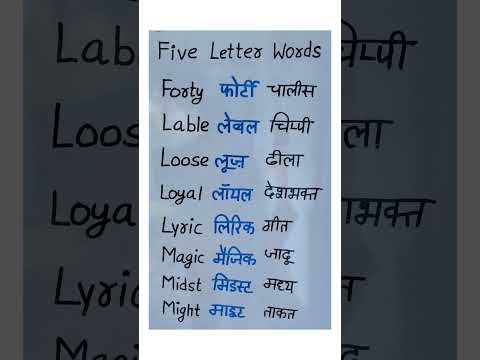 Five Letter Words
Forty फोर्टी चालीस
Lable लेबल चिप्पी
Loose लूज़ ढीला
Loyal लॉयल देशभक्त
Lyric लिरिक गीत
Magic मैजिक जादू
Midst मिडस्ट मध्य
Might माइट ताकत